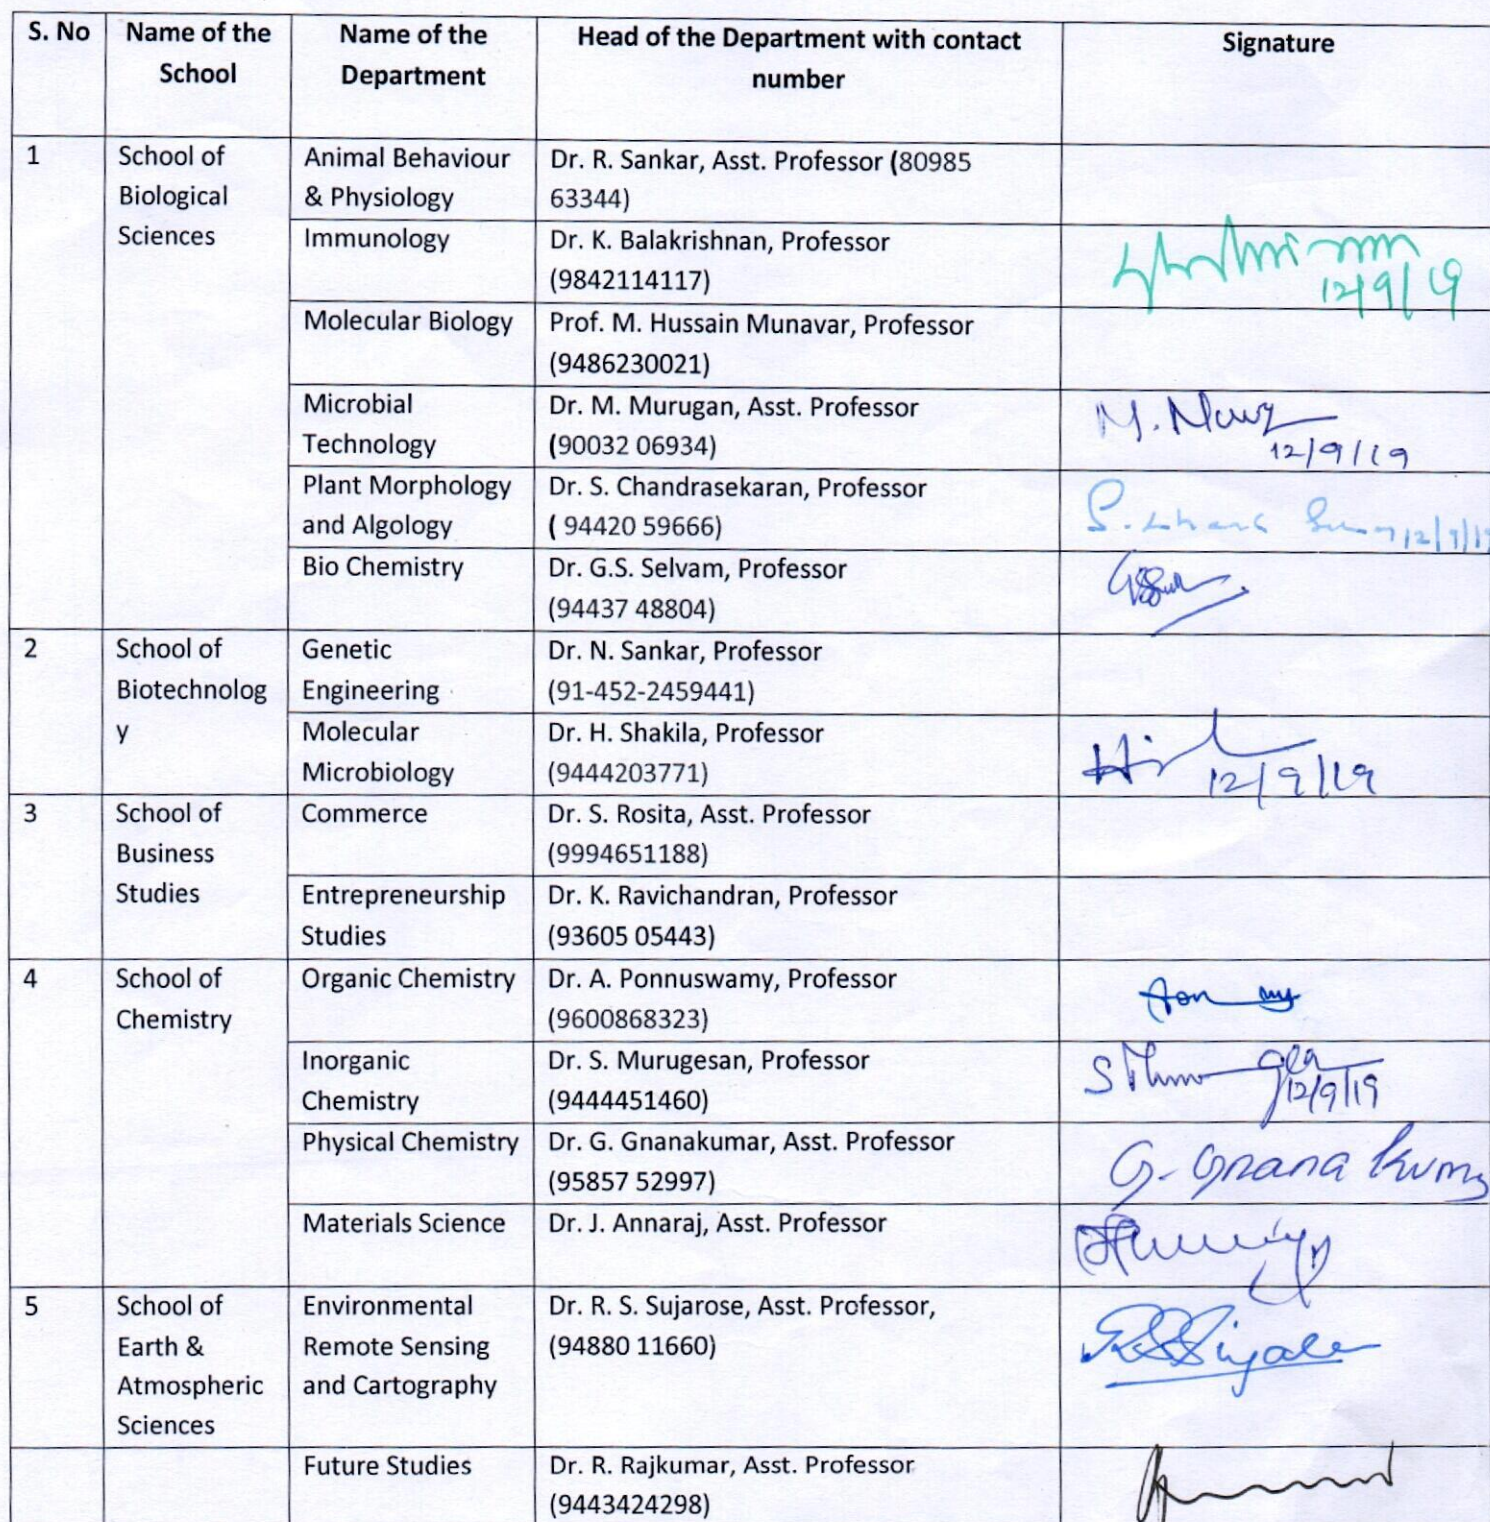 S. No Name of the School Name of the Department Head of the Department with contact number Signature
1 School of Biological Sciences
Animal Behaviour & Physiology
Dr. R. Sankar, Asst. Professor (80985
63344)
Immunology
Dr. K. Balakrishnan, Professor
(9842114117)
12/9/19
Molecular Biology
Prof. M. Hussain Munavar, Professor
(9486230021)
Microbial
Technology
Dr. M. Murugan, Asst. Professor
(90032 06934)
12/9/19
Plant Morphology
and Algology
Dr. S. Chandrasekaran, Professor
( 94420 59666)
Bio Chemistry
Dr. G.S. Selvam, Professor
(94437 48804)
2
School of
Biotechnolog
y
Genetic
Engineering
Dr. N. Sankar, Professor
(91-452-2459441)
Molecular
Microbiology
Dr. H. Shakila, Professor
(9444203771)
12/9/19
3
School of
Business
Studies
Commerce
Dr. S. Rosita, Asst. Professor
(9994651188)
Entrepreneurship
Studies
Dr. K. Ravichandran, Professor
(93605 05443)
4
School of
Chemistry
Organic Chemistry
Dr. A. Ponnuswamy, Professor
(9600868323)
Inorganic
Chemistry
Dr. S. Murugesan, Professor
(9444451460)
12/9/19
Physical Chemistry
Dr. G. Gnanakumar, Asst. Professor
(95857 52997)
G. Gnana Kumar
Materials Science
Dr. J. Annaraj, Asst. Professor
5
School of
Earth &
Atmospheric
Sciences
Environmental
Remote Sensing
and Cartography
Dr. R. S. Sujarose, Asst. Professor,
(94880 11660)
Future Studies
Dr. R. Rajkumar, Asst. Professor
(9443424298)